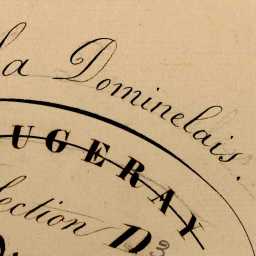 La Dominelais.
UGERAY
ection D